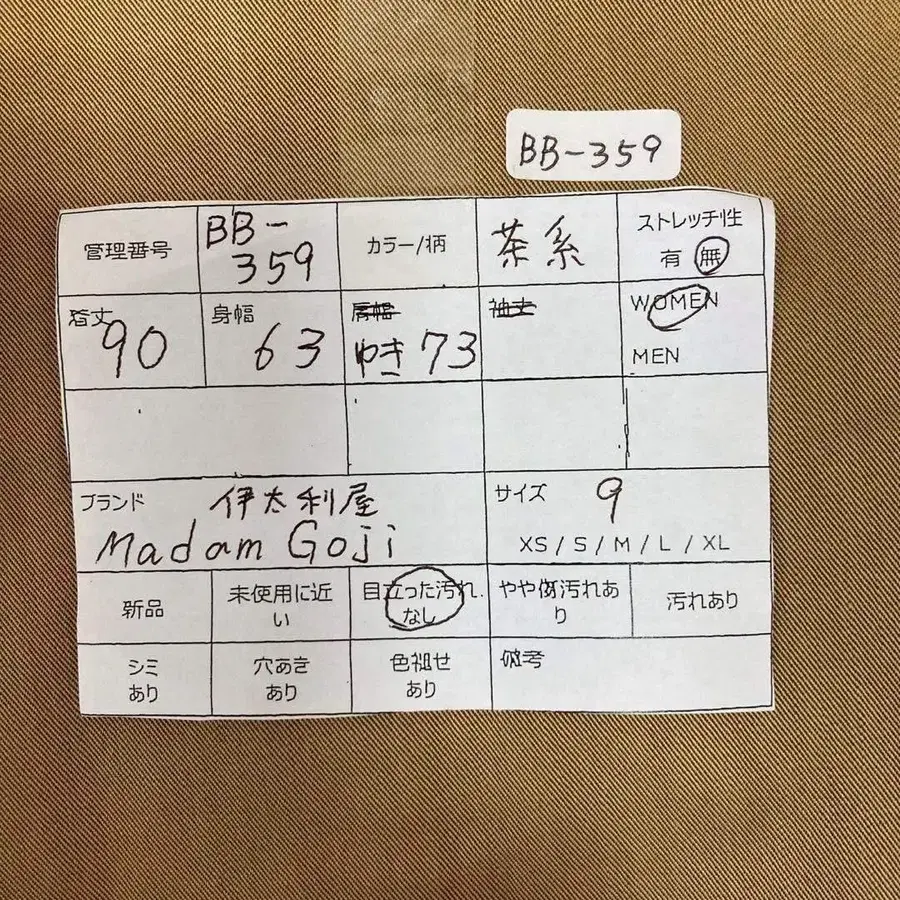 BB-359
管理番号
BB-
359
カラー/柄
茶系
ストレッチ性
有 無
着丈
90
身幅
63
肩幅
ゆき 73
袖丈
WOMEN
MEN
ブランド 伊太利屋
Madam Goji
サイズ 9
XS / S / M / L / XL
新品
未使用に近
い
目立った汚れ
なし
やや傷汚れあ
り
汚れあり
シミ
あり
穴あき
あり
色褪せ
あり
備考